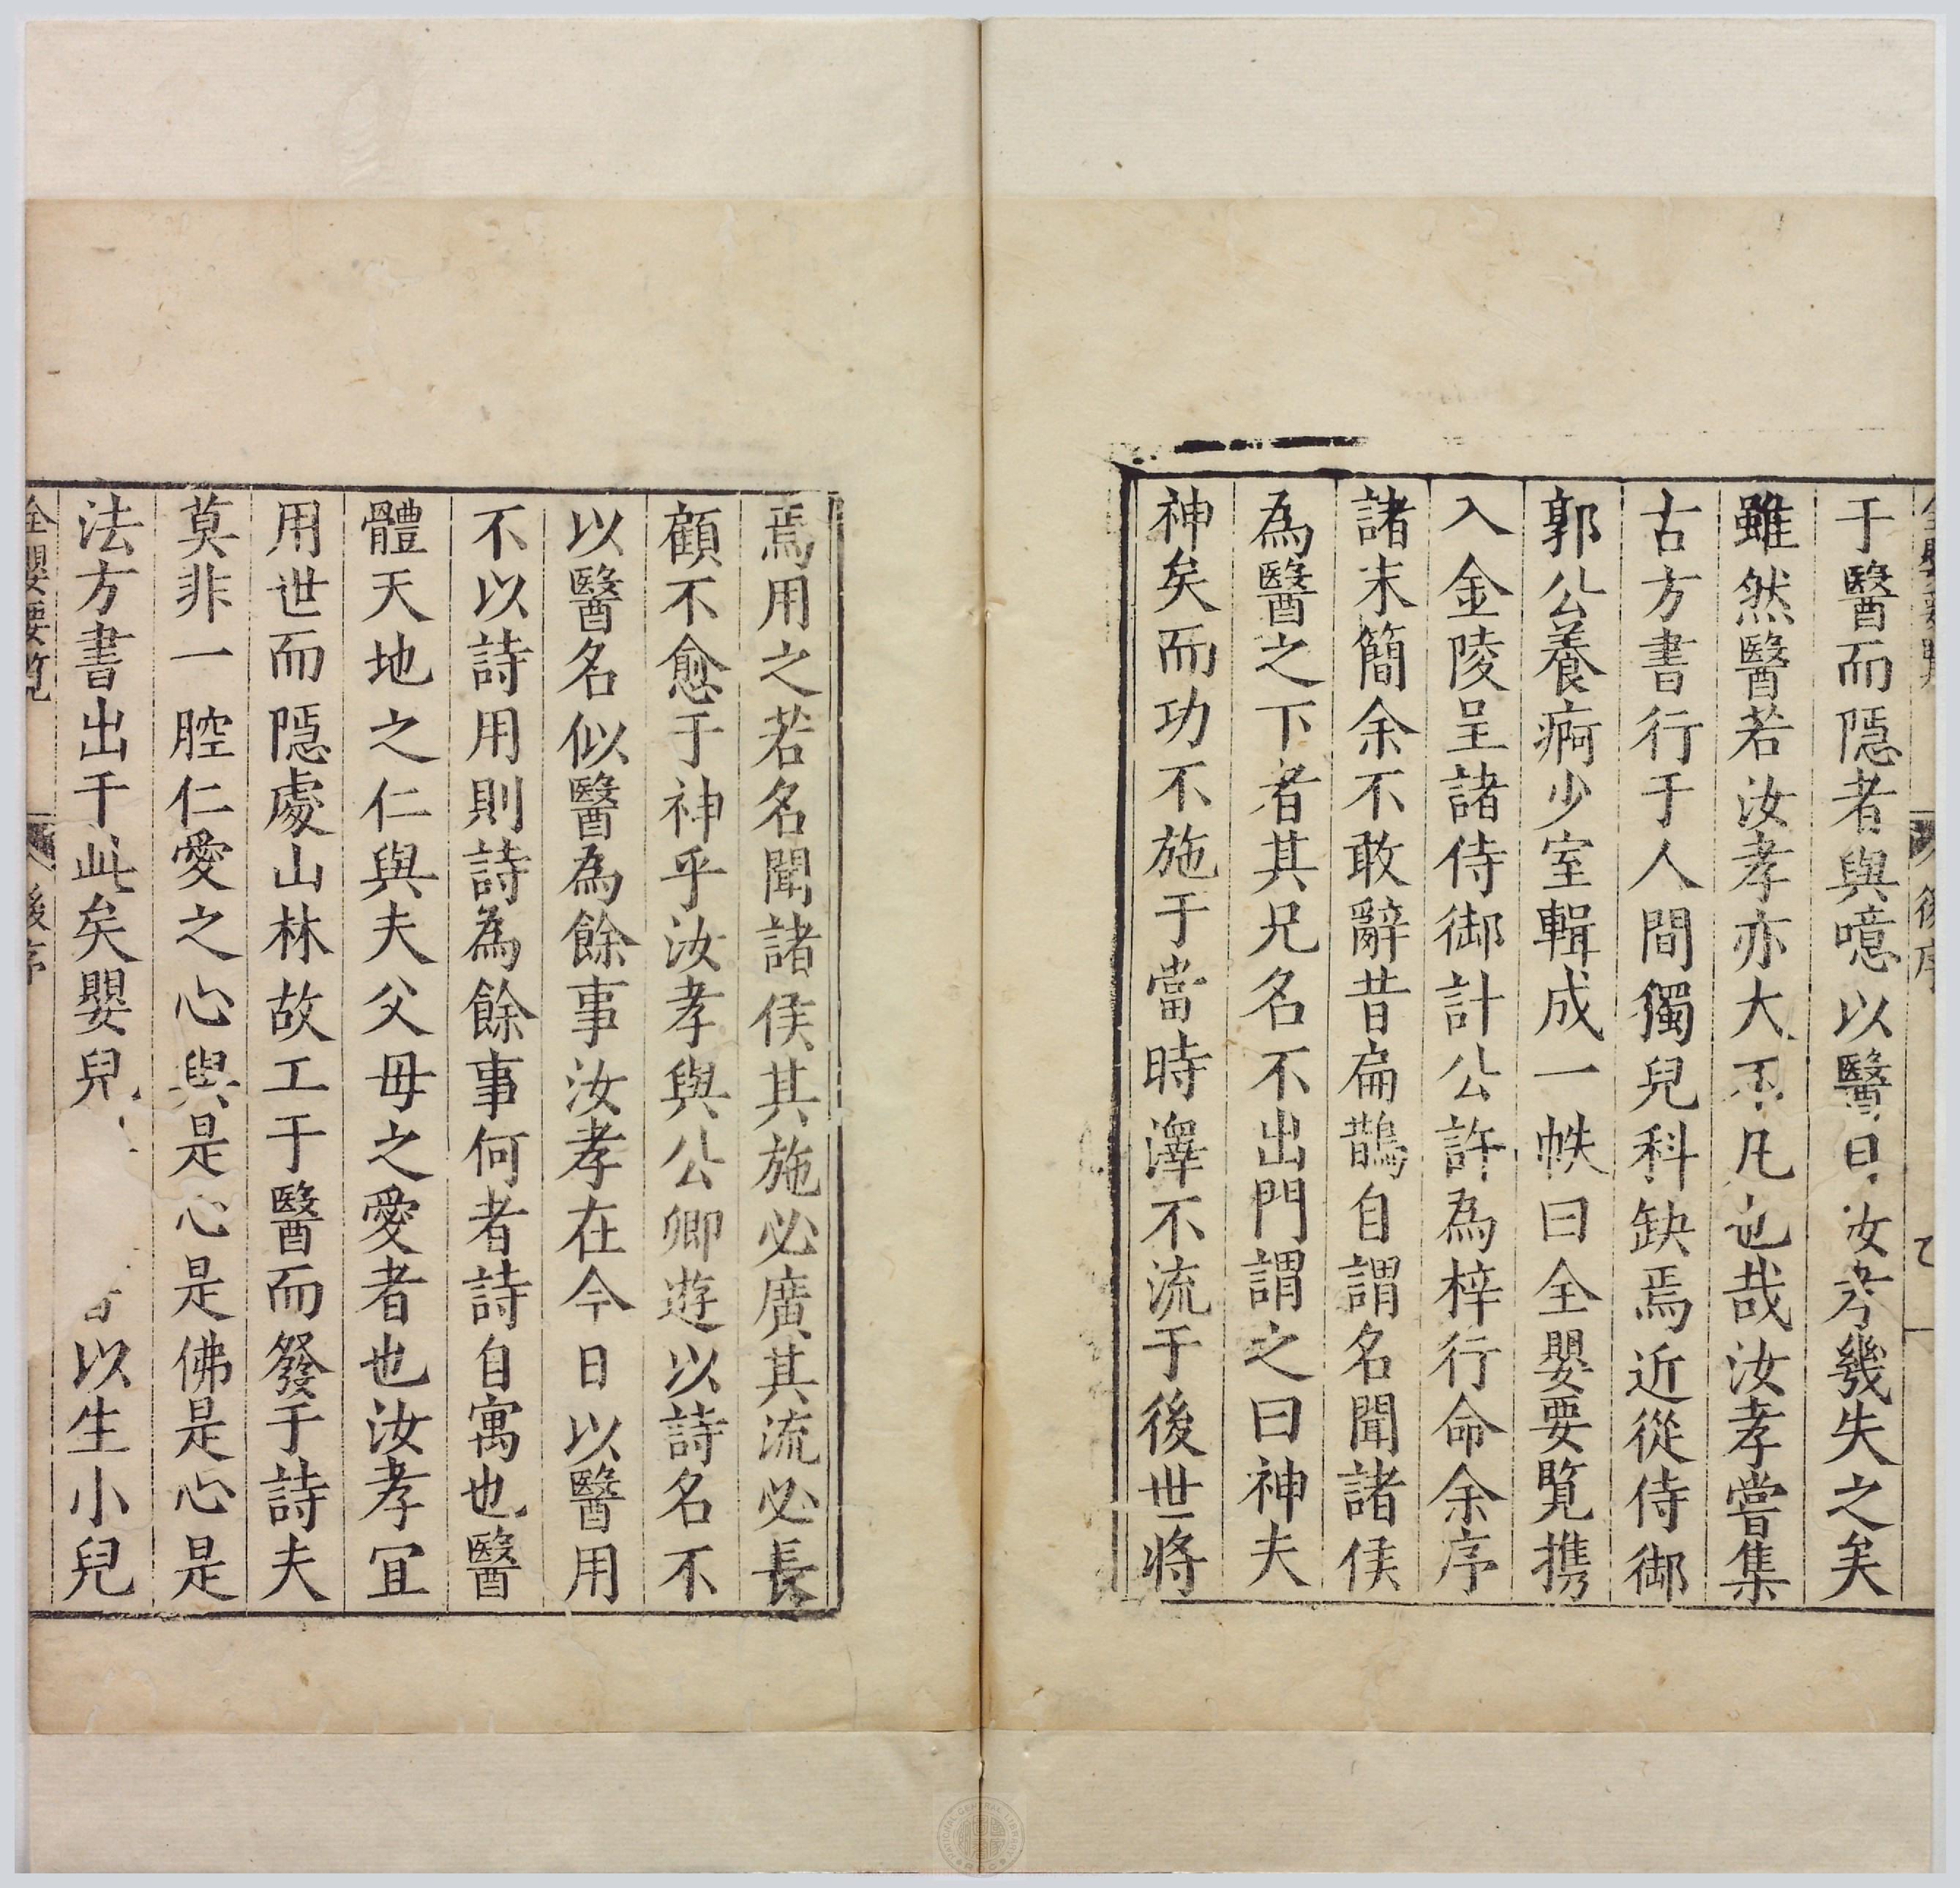 于醫而隱者與噫以醫曰汝孝幾失之矣
雖然醫若汝孝亦大不凡也哉汝孝嘗集
古方書行于人間獨兒科缺焉近從侍御
郭公養痾少室輯成一帙曰全嬰要覽携
入金陵呈諸侍御計公許為梓行命余序
諸末簡余不敢辭昔扁鵲自謂名聞諸侯
為醫之下者其兄名不出門謂之曰神夫
神矣而功不施于當時澤不流于後世將
焉用之若名聞諸侯其施必廣其流必長
顧不愈于神乎汝孝與公卿遊以詩名不
以醫名似醫為餘事汝孝在今日以醫用
不以詩用則詩為餘事何者詩自寓也醫
體天地之仁與夫父母之愛者也汝孝宜
用世而隱處山林故工于醫而發于詩夫
莫非一腔仁愛之心與是心是佛是心是
法方書出于此矣嬰兒以生小兒
全嬰要覽 後序